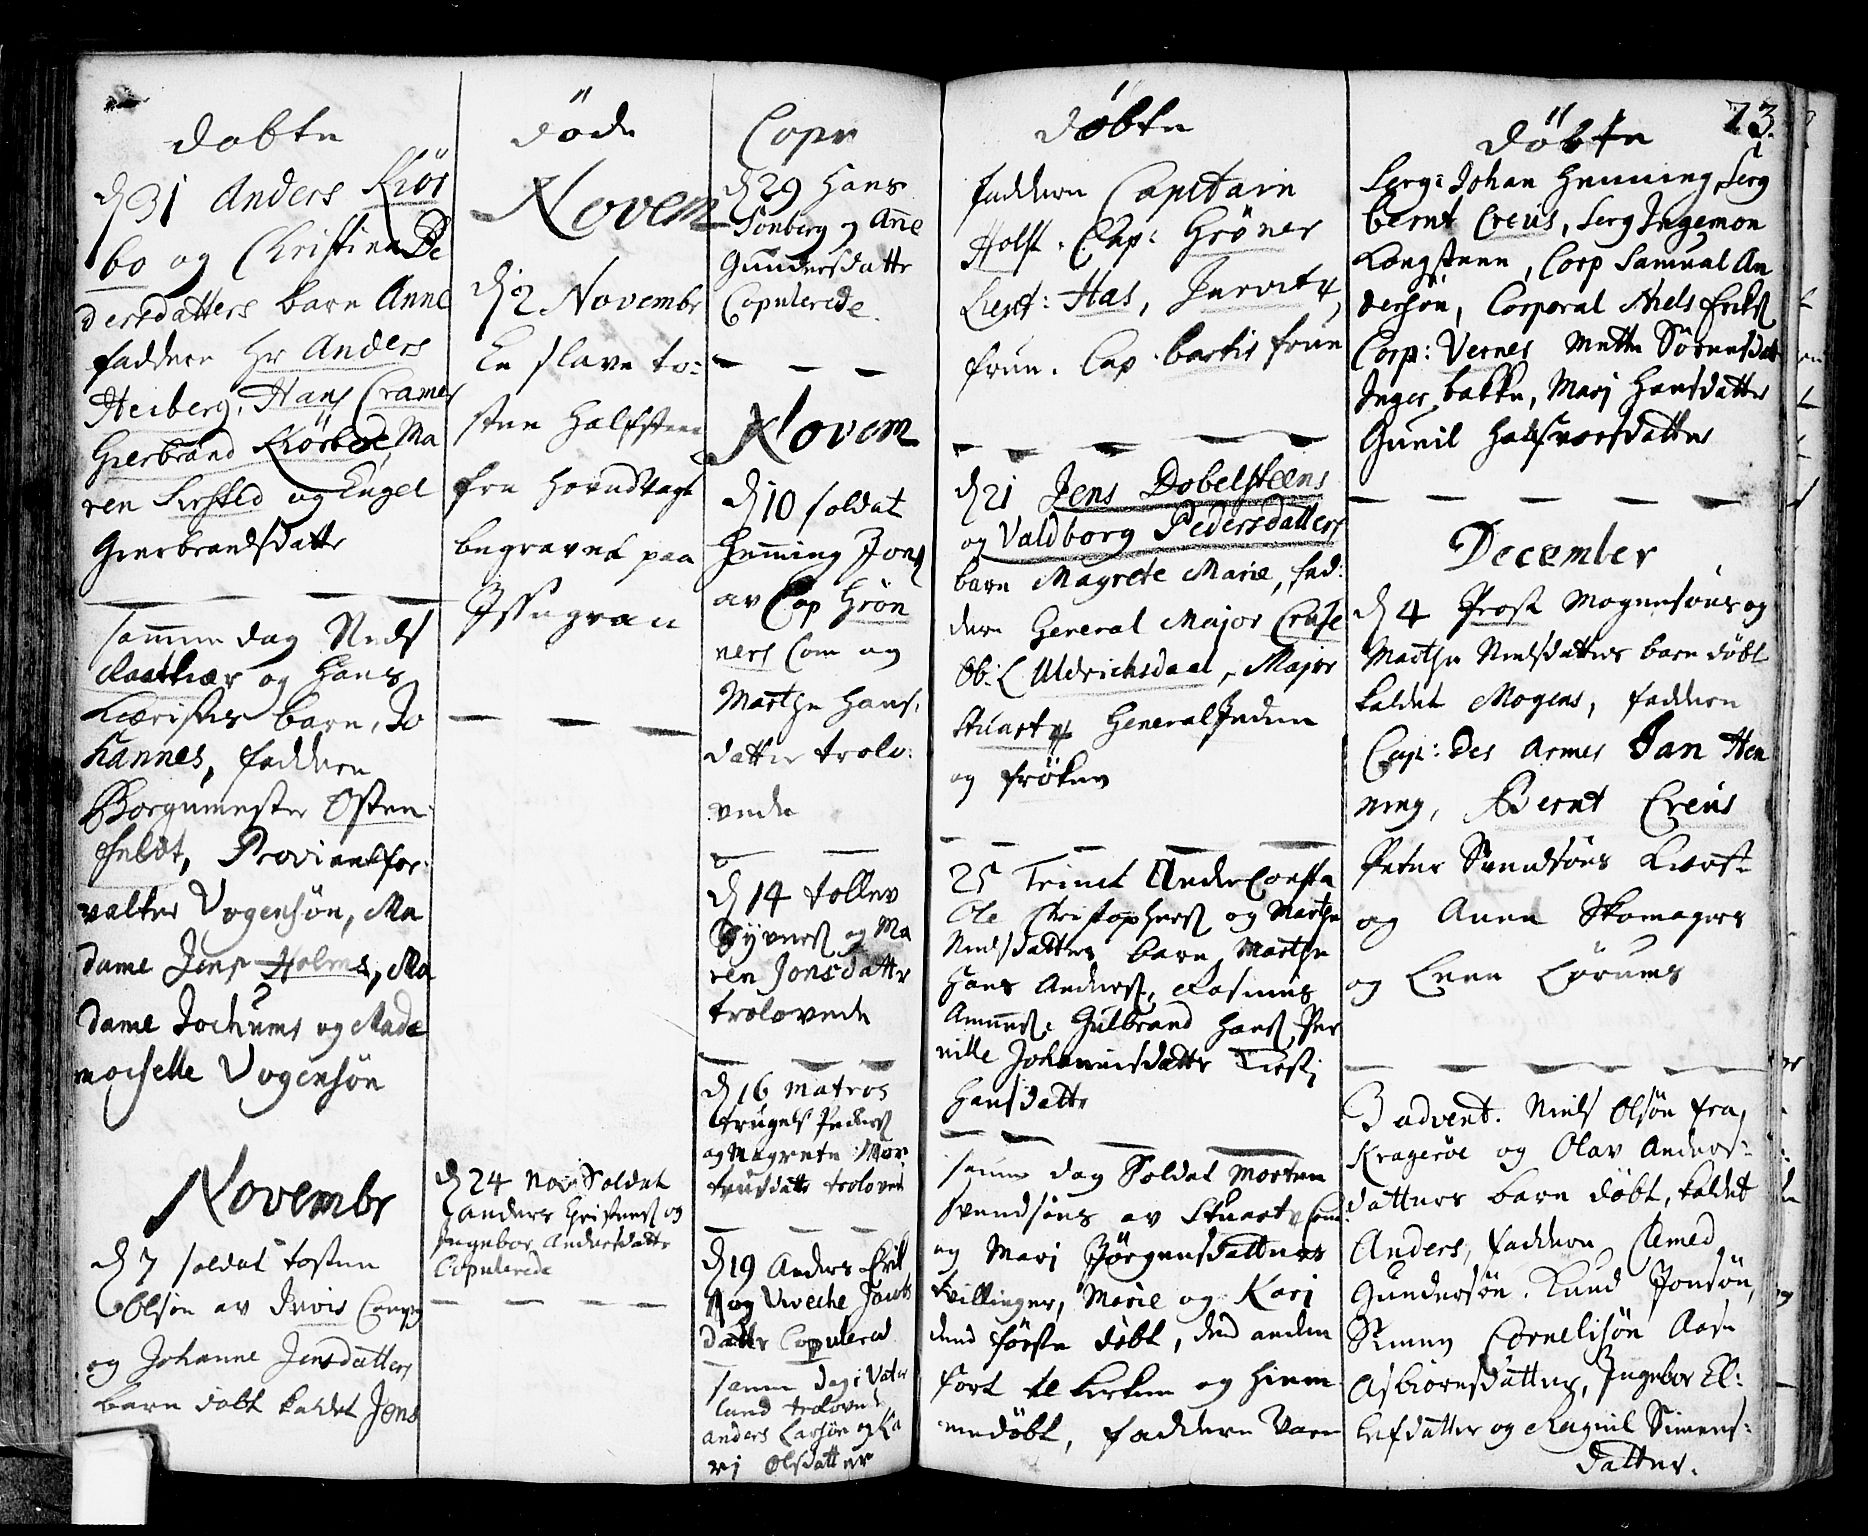 døbte
d 31 Anders Kiør
bo og Christine Pe
dersdatters barn Anne
faddere Hr Anders
Heiberg, Hans Cramer
Gierbrand Kiørboe, Ma
ren og Engel
Gierbrandsdatter
sammen dag Niels
Raatkiær og Hans
barn, Jo
hannes, faddere
Borgemester Osten
feldt, Proviantfor:
valter Vogensøn, Ma
dame Jens Holms, Ma
dame Jochums og Made
moiselle Vogensøn
Novembr
d 7 soldat Tosten
Olsøn av Compag
og Johanne Jensdatters
barn døbt kaldet Jens
døde
Novem
d 2 Novembr
En slave to:
sten Halfsteen
fra
begravet paa
d 24 Nov Soldat
Anders og
Ingebor Andersdatter
Copulerede
Copu
d 29 Hans
Tønberg og Anne
Gundersdatter
Copulerede.
Novem
d 10 soldat
Henning Jons
av Cap Grøn
ners Com og
Marthe Hans
datter trolo:
vede
d 14 Tollev
Syvers og Ma
ren Jonsdatter
trolovede
d 16 Matros
Trugels Peders
og Magrete Mor
tensdatter trolovet
d 19 Anders Erik
s og Viveche Jacobs
datter Copulered
samme dag i Vater
land trolovet
Anders Larsøn og Ka
ri Olsdatter
døbte
faddere Capitain
Holst, Cap: Grøner
Lieut: Has,
frue. Cap bartis frue
d 21 Jens Dobelsteens
og Valdborg Pedersdatters
barn Magrete Marie, fad:
dere General Major Cruse
Ob: L Uldrichsdaal, Major
Stuart General
og frøken
25 Trinet
Ole Kristophers og Marthe
Nielsdatters barn Marthe
Hans Anders, Rasmus
Amunds: Gulbrand Hans Per
nille Johannisdatter
Hansdatter
samme dag Soldat Morten
Svendsøns av Stuarts Com:
og Mari Jørgensdatters
tvillinger, Marie og Kari
dend første døbt, dend anden
fort te kirken og hiem
medøbt, faddere vare
73.
døbte
Serg: Johan Henning, Serg
bernt Creüs, Serg Ingemon
Langsteen, Corp Samual An
dersøn, Corporal Niels Eriks
Corp: Vernes Mette Sørensdat
Inger bakke, Mari Hansdatter
Gunil Halfvorsdatter
December
d 4 Prost Mogensøns og
Marthe Nielsdatters barn døbt
kaldet Mogens, faddere
Cap: des Armes Jan Hen
ning, Bernt Creüs
Peter Svendsøns
og Anne Skomagers
og Lene Lørums
3 advent. Niels Olsøn fra
Kragerøe og Olav Anders:
datters barn døbt, kaldet
Anders, faddere Clemed
Gundersøn, Knud Jonsøn,
Simen Cornelisøn Aase
Asbiørnsdatter, Ingebor El:
lefsdatter og Ragnil Simens:
datter.